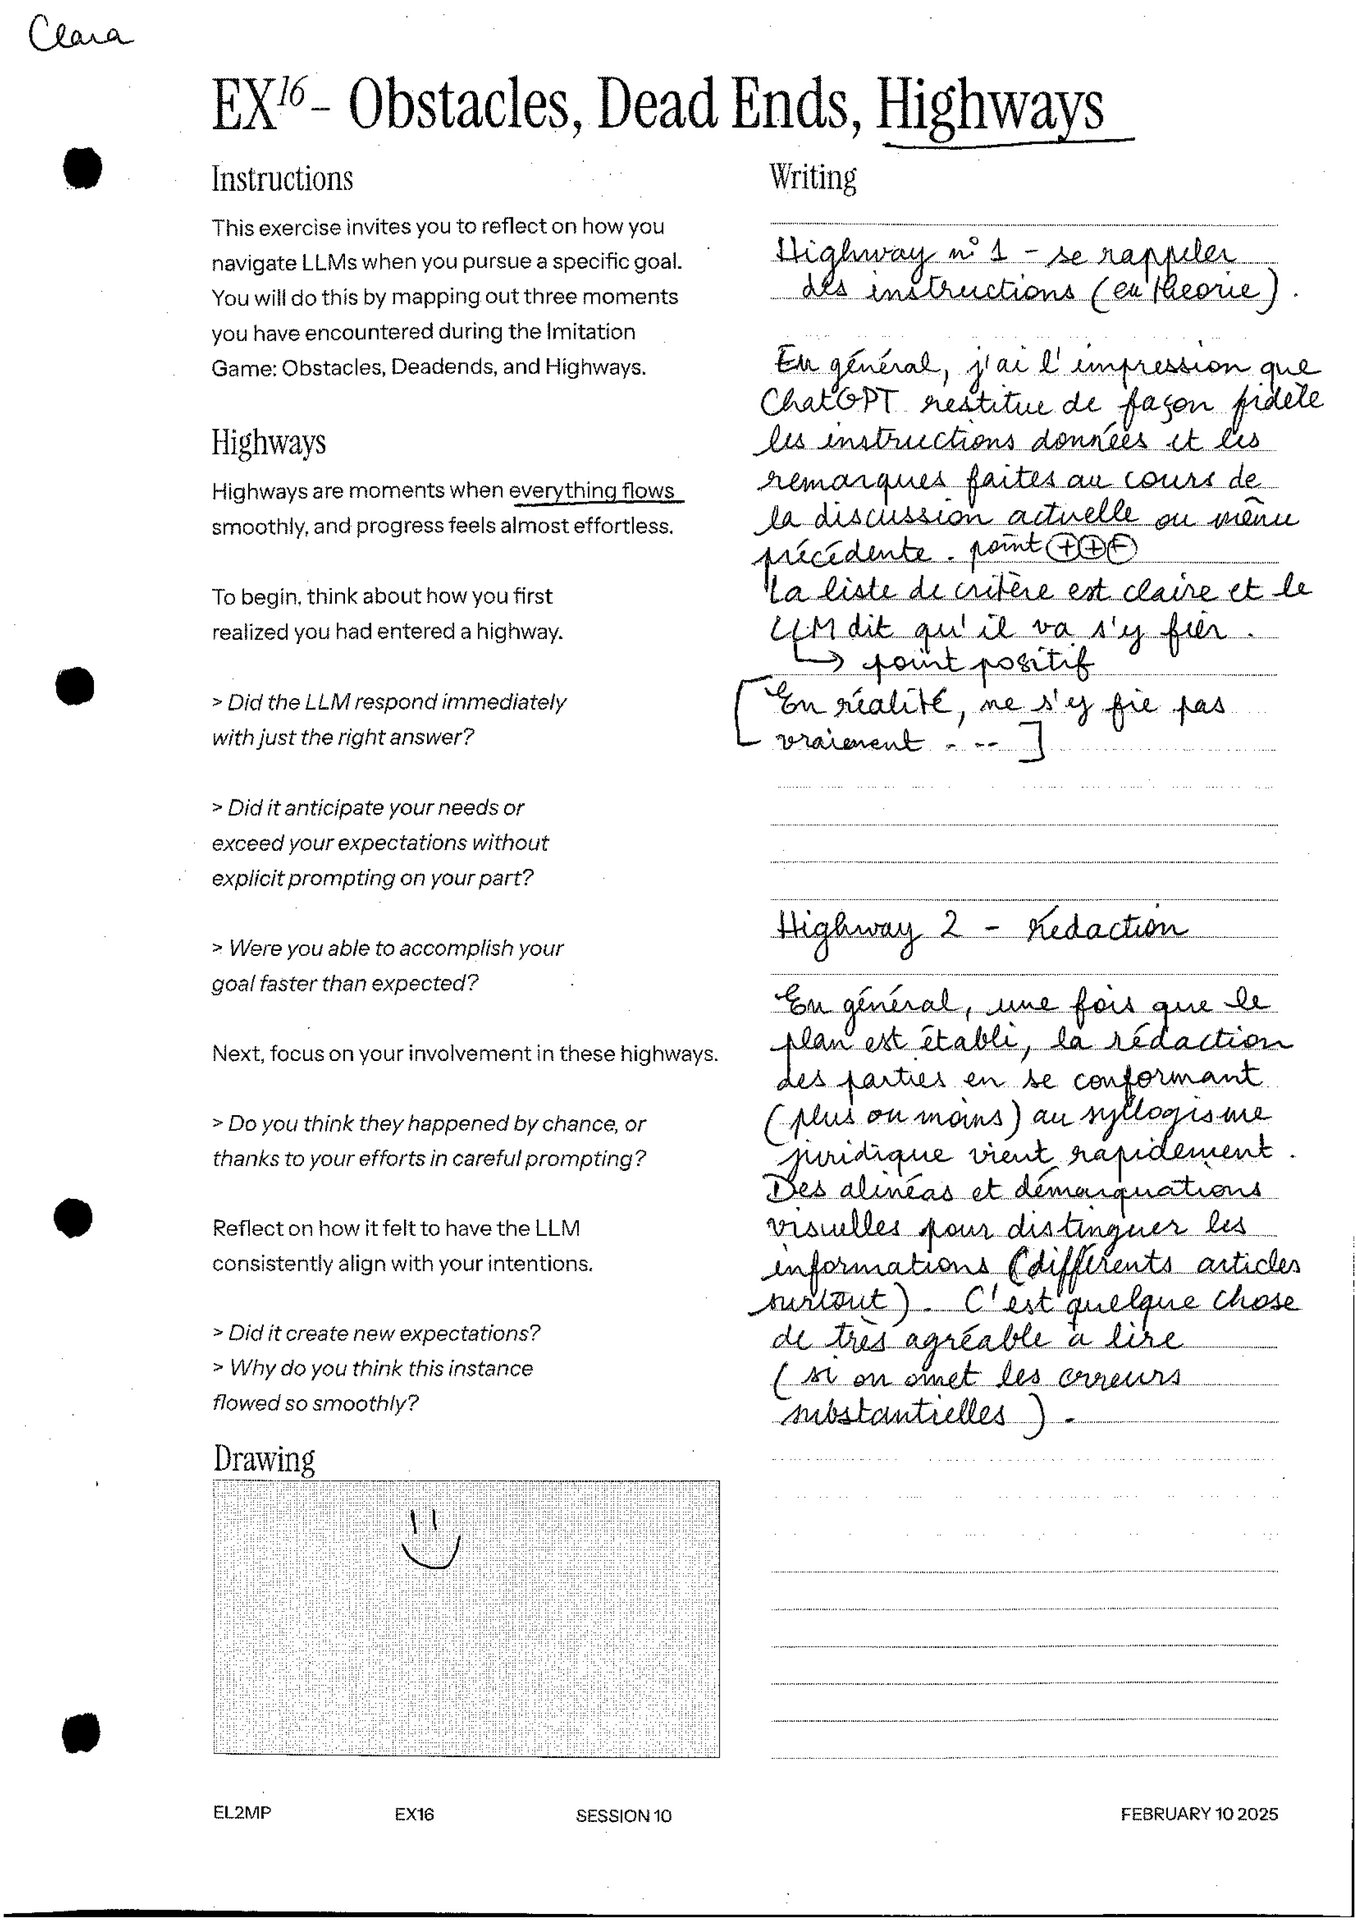 Clara
EX16 - Obstacles, Dead Ends, Highways
Instructions
This exercise invites you to reflect on how you
navigate LLMs when you pursue a specific goal.
You will do this by mapping out three moments
you have encountered during the Imitation
Game: Obstacles, Deadends, and Highways.
Highways
Highways are moments when everything flows
smoothly, and progress feels almost effortless.
To begin, think about how you first
realized you had entered a highway.
> Did the LLM respond immediately
with just the right answer?
> Did it anticipate your needs or
exceed your expectations without
explicit prompting on your part?
> Were you able to accomplish your
goal faster than expected?
Next, focus on your involvement in these highways.
> Do you think they happened by chance, or
thanks to your efforts in careful prompting?
Reflect on how it felt to have the LLM
consistently align with your intentions.
> Did it create new expectations?
> Why do you think this instance
flowed so smoothly?
Drawing
Writing
Highway n° 1 - se rappeler
des instructions (en théorie).
En général, j'ai l'impression que
ChatGPT restitue de façon fidèle
les instructions données et les
remarques faites au cours de
la discussion actuelle ou même
précédente. point ++-
La liste de critère est claire et le
LLM dit qu'il va s'y fier.
↳ point positif
[En réalité, ne s'y fie pas
vraiment ...]
Highway 2 - Rédaction
En général, une fois que le
plan est établi, la rédaction
des parties en se conformant
(plus ou moins) au syllogisme
juridique vient rapidement.
Des alinéas et démarquations
visuelles pour distinguer les
informations (différents articles
surtout). C'est quelque chose
de très agréable à lire
(si on omet les erreurs
substantielles).
EL2MP EX16 SESSION 10 FEBRUARY 10 2025